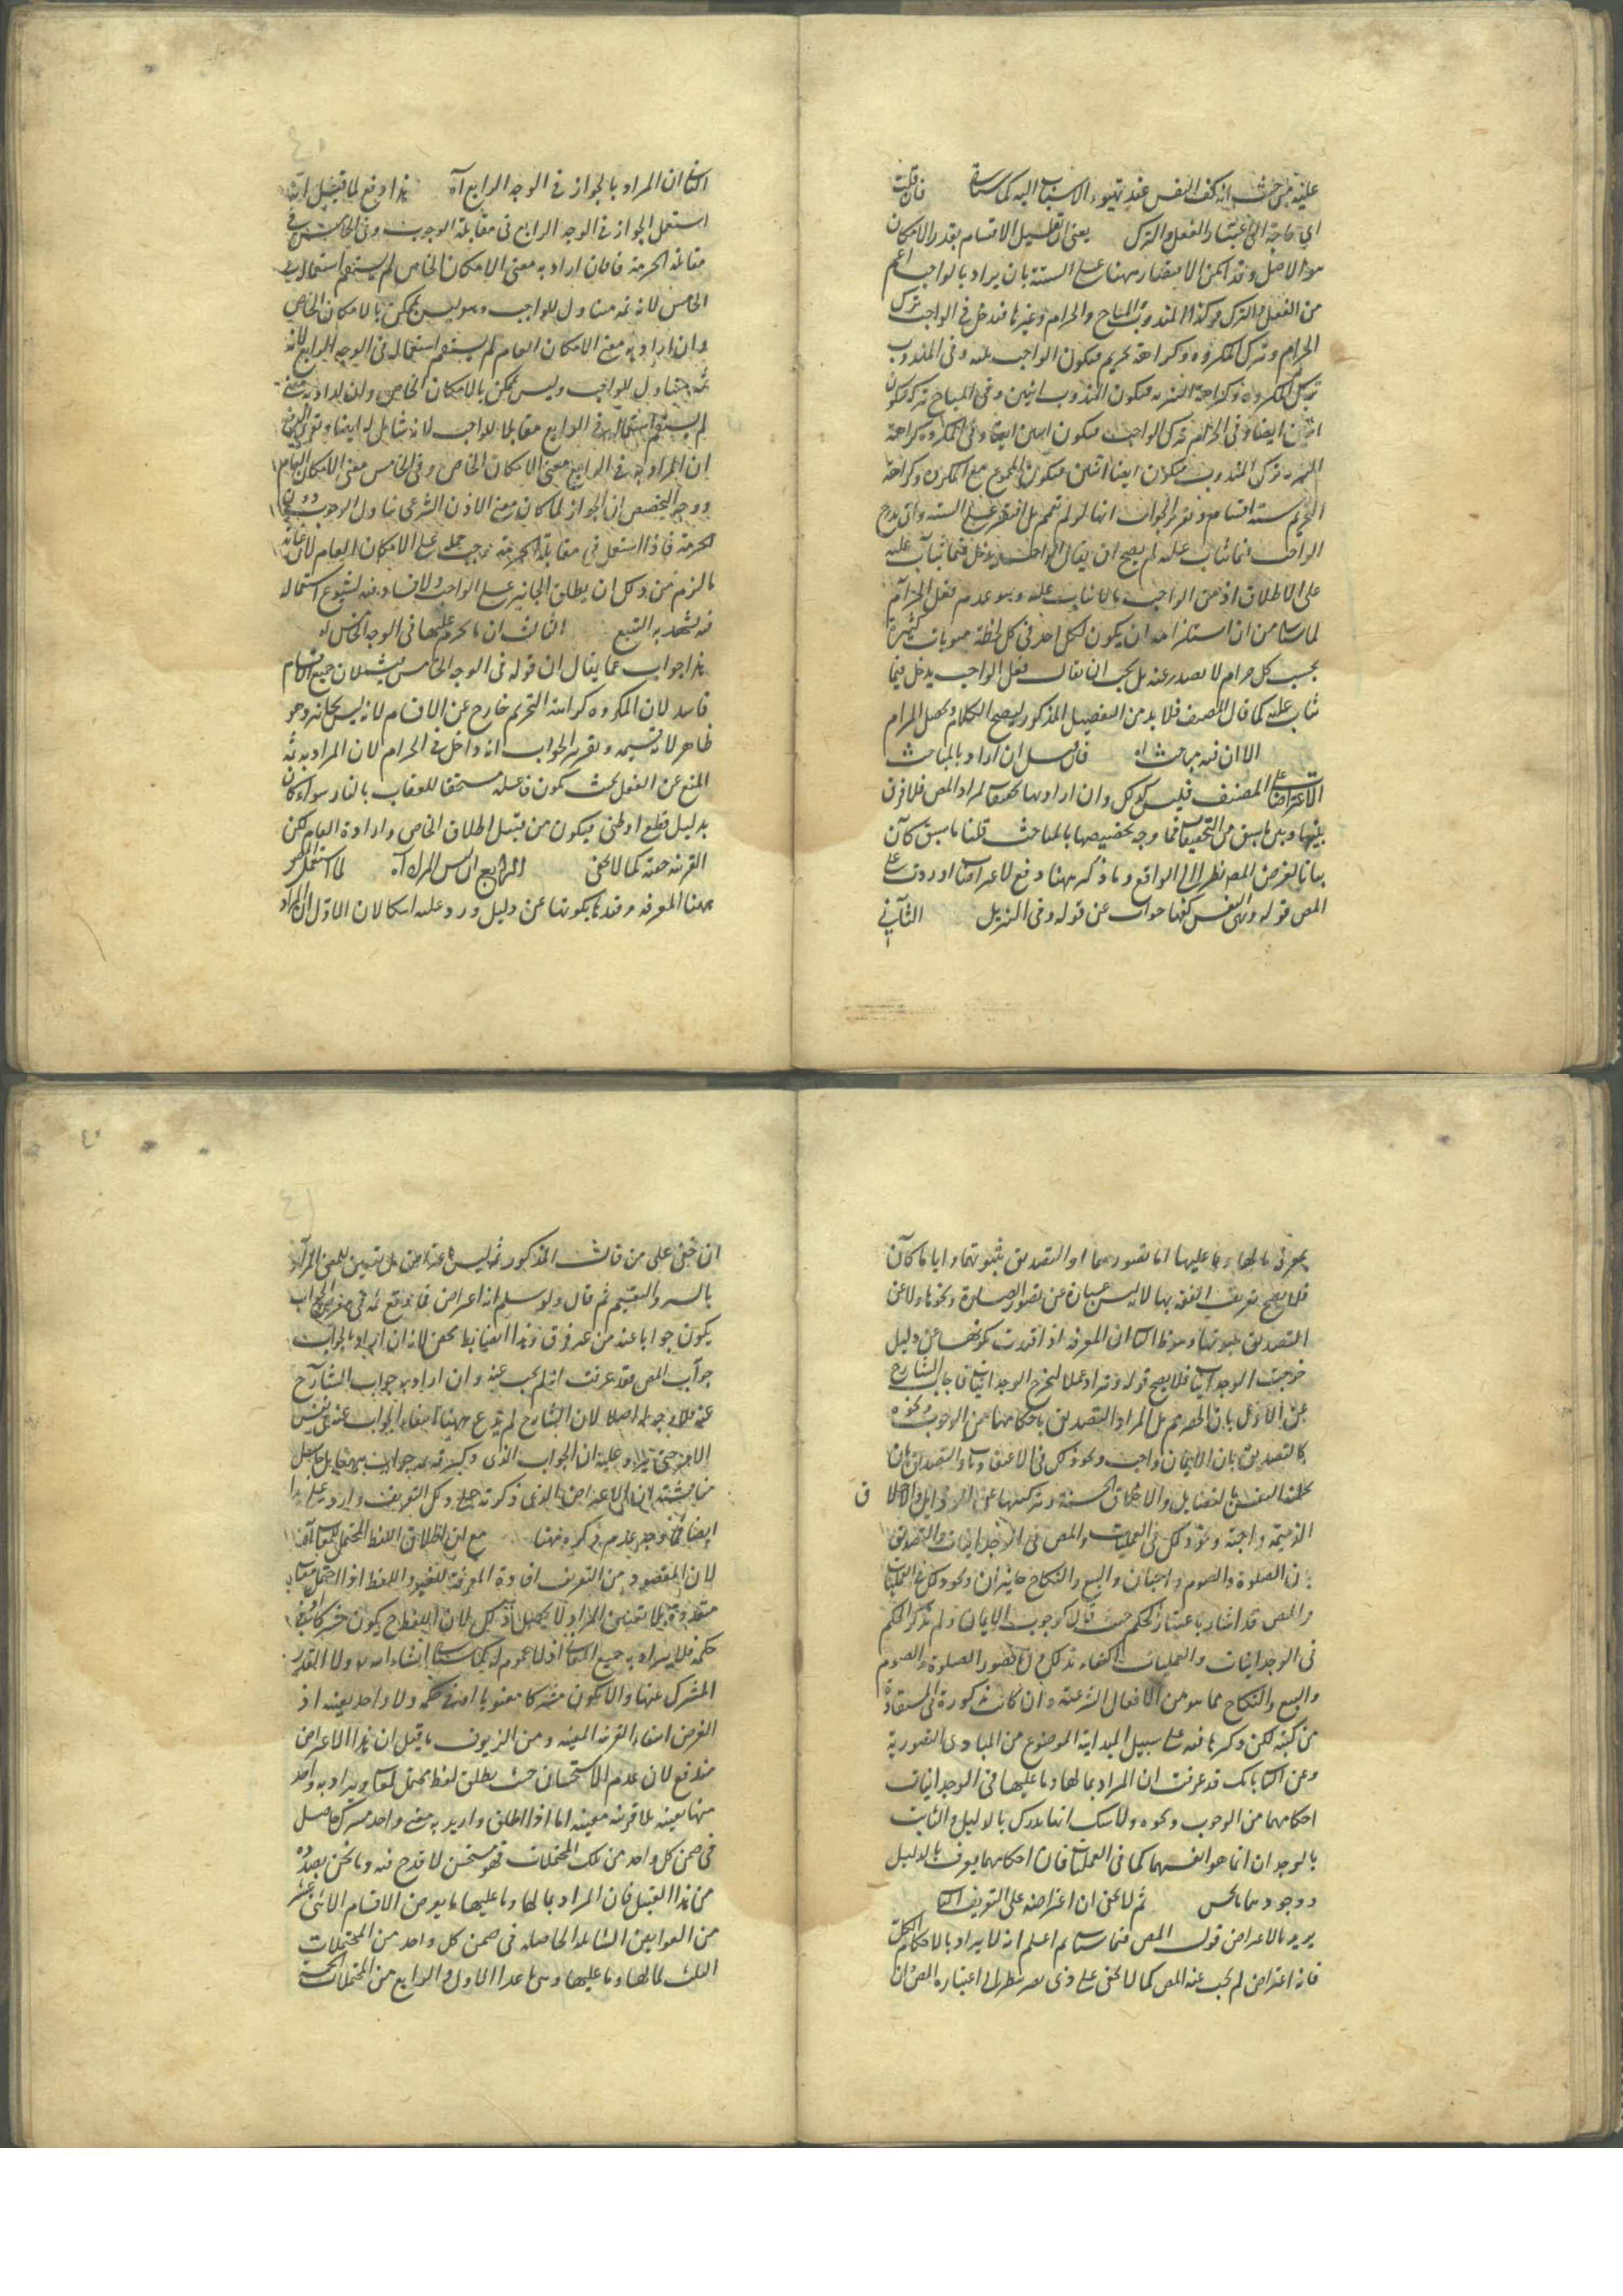 عليه من حيث انه كف النفس عند تهيوء الاسباب اليه كما سيأتي فان قلت
اي حاجة الى اعتبار الفعل والترك يعني ان تقليل الاقسام بقدر الامكان
هو الاصل وقد امكن الاقتصار ههنا على الستة بان يراد بالواجب اعم
من الفعل والترك وكذا المندوب والمباح والحرام وغيرها فتدخل في الواجب ترك
الحرام وترك المكروه كراهة تحريم فيكون الواجب ثلثه وفي المندوب
ترك المكروه كراهة التنزيه فيكون المندوب اثنين وفي المباح تركه فيكون
اثنين ايضا وفي الحرام ترك الواجب فيكون اثنين ايضا وفي المكروه كراهة
التنزيه ترك المندوب فيكون ايضا اثنين فيكون المجموع مع المكروه كراهة
التحريم ستة اقسام وتقرير الجواب انها لو لم تعمم بل اقتصر على الستة واندرج
الواجب فيما يثاب عليه لم يصح ان يقال الواجب يدخل فيما يثاب عليه
على الاطلاق اذ من الواجب ما لا يثاب عليه وهو عدم فعل الحرام
لما سيأتي من ان استلزامه ان يكون لكل احد في كل لحظة مثوبات كثيرة
بحسب كل حرام لا يصدر عنه بل يجب ان يقال فعل الواجب يدخل فيما
يثاب عليه كما قال المصنف فلا بد من التفصيل المذكور ليصح الكلام ويحصل المرام
الا ان فيه مباحث اه فان قيل ان اراد بالمباحث
الاعتراضات على المصنف فليس كذلك وان اراد بها تحقيقات لمراد المص فلا فرق
بينها وبين ما سبق من التحقيقات فما وجه تخصيصها بالمباحث قلنا ما سبق كان
بيانا لغرض المص نظرا الى الواقع وما ذكر ههنا دفع لاعتراضات اوردت على
المص قوله ونهى النفس كفها جواب عن قوله وفي التنزيل الثاني
الثاني ان المراد بالجواز في الوجه الرابع آه هذا دفع لما قيل انه
استعمل الجواز في الوجه الرابع في مقابلة الوجوب وفي الخامس في
مقابلة الحرمة فان اراد به معنى الامكان الخاص لم يستقم استعماله في
الخامس لانه ثمه متناول للواجب وهو ليس بممكن بالامكان الخاص
وان اراد به معنى الامكان العام لم يستقم استعماله في الوجه الرابع لانه
ثمه
لم يستقم استعماله في الرابع مقابلا للواجب لانه شامل له ايضا وتقرير الدفع
ان المراد به في الرابع معنى الامكان الخاص وفي الخامس معنى الامكان العام
ووجه التخصيص ان الجواز لما كان بمعنى الاذن الشرعي يتناول الوجوب دون
الحرمة فاذا استعمل في مقابلة الحرمة يجب حمله على الامكان العام لان غاية
ما لزم من ذلك ان يطلق الجائز على الواجب ولا فساد فيه لشيوع استعماله
فيه يشهد به التتبع الثالث ان ما يحرم عليها في الوجه الخامس آه
هذا جواب عما يقال ان قوله في الوجه الخامس يشملان جميع الاقسام
فاسد لان المكروه كراهة التحريم خارج عن الاقسام لانه ليس بجائز وهو
ظاهر لانه قسيمه وتقرير الجواب انه داخل في الحرام لان المراد به ثمه
المنع عن الفعل بحيث يكون فاعله مستحقا للعقاب بالنار سواء كان
بدليل قطعي او ظني فيكون من قبيل اطلاق الخاص وارادة العام لكن
القرينة خفية كما لا يخفى الرابع ليس المراد آه لما استعمل المص
ههنا المعرفة وقيدها بكونها عن دليل ورد عليه اشكالان الاول ان المراد
بمعرفة ما لها وما عليها اما تصورهما او التصديق بثبوتهما وايا ما كان
فلا يصح تعريف الفقه بها لانه ليس عبارة عن تصور الصلوة ونحوها ولا عن
التصديق بثبوتها وهو ظ الثاني ان المعرفة اذا قيدت بكونها عن دليل
خرجت الوجدانيات فلا يصح قوله وتزاد عملا ليخرج الوجدانيات فاجاب الشارح
عن الاول بان الحصر ثم بل المراد التصديق باحكامهما من الوجوب ونحوه
كالتصديق بان الايمان واجب ونحو ذلك في الاعتقاديات والتصديق بان
تحلية النفس بالفضايل والاخلاق الحسنة وتزكيتها عن الرذايل والاخلاق
الذميمة واجبة ونحو ذلك في الوجدانيات والتصديق
بان الصلوة والصوم واجبتان والبيع والنكاح جائزان ونحو ذلك في العمليات
والمص قد اشار باعتبار الحكم حيث قال كوجوب الايمان ولم يذكر الحكم
في الوجدانيات والعمليات اكتفاء بذلك وان تصور الصلوة والصوم
والبيع والنكاح مما هو من الافعال الشرعية وان كانت مذكورة
من كتبه لكن ذكرها فيه على سبيل المبدئية الموضوع من المبادي التصورية
وعن الثاني بانك قد عرفت ان المراد بما لها وما عليها في الوجدانيات
احكامهما من الوجوب ونحوه ولا شك انها تدرك بالدليل والثابت
بالوجدان انما هو انفسهما كما في العمليات فان احكامهما يعرف بالدليل
ووجودهما بالحس ثم لا يخفى ان اعتراضه على التعريف الثاني
يريد بالاعتراض قول المص فيما سيأتي ثم اعلم انه لا يراد بالاحكام الكل
فانه اعتراض لم يجب عنه المص كما لا يخفى على ذي بصر نظرا الى اعتباره المص وان
ان خفي على من قال المذكور ثمه ليس باعتراض بل تعيين للمعنى المراد
بالسبر والتقسيم ثم قال ولو سلم انه اعتراض فما وقع ثمه في معرض الجواب
يكون جوابا عنه من غير فرق وهذا ايضا خبط محض لانه ان اراد بالجواب
جواب المص فقد عرفت انه لم يجب عنه وان اراد به جواب الشارح
عنه فلا وجه له اصلا لان الشارح لم يدع ههنا انتفاء الجواب عنه في نفس
الامر حتى يرد عليه ان الجواب الذي ذكرته ثمه جواب ههنا بل حاصل
مناقشته ان الاعتراض الذي ذكرته على ذلك التعريف وارد على هذا
ايضا فما وجه عدم ذكره ههنا مع ان اطلاق اللفظ المحتمل للمعاني آه
لان المقصود من التعريف افادة المعرفة للغير واللفظ اذا احتمل معاني
متعددة بلا تعيين المراد لا يحصل ذلك لان اللفظ ح يكون مشتركا
حكمه فلا يراد به جميع المعاني اذ لا عموم له كما سيأتي ان شاء الله ولا القدر
المشترك بينها والا يكون مشتركا معنويا او في حكمه ولا واحد بعينه اذ
الفرض انتفاء القرينة المعينة ومن الزيوف ما قيل ان هذا الاعتراض
مندفع لان عدم الاستحسان حيث يطلق لفظ يحتمل لمعان ويراد به واحد
منها بعينه بلا قرينة معينة اما اذا اطلق واريد به معنى واحد مشترك حاصل
في ضمن كل واحد من تلك المحتملات فهو مستحسن لا قدح فيه وما نحن بصدده
من هذا القبيل فان المراد بما لها وما عليها ما يعرض الاقسام الاثنى عشر
من العوارض الشاملة الحاصلة في ضمن كل واحد من المحتملات
الثلث لما لها وما عليها وهي ما عدا الاول والرابع من المحتملات الخمسة